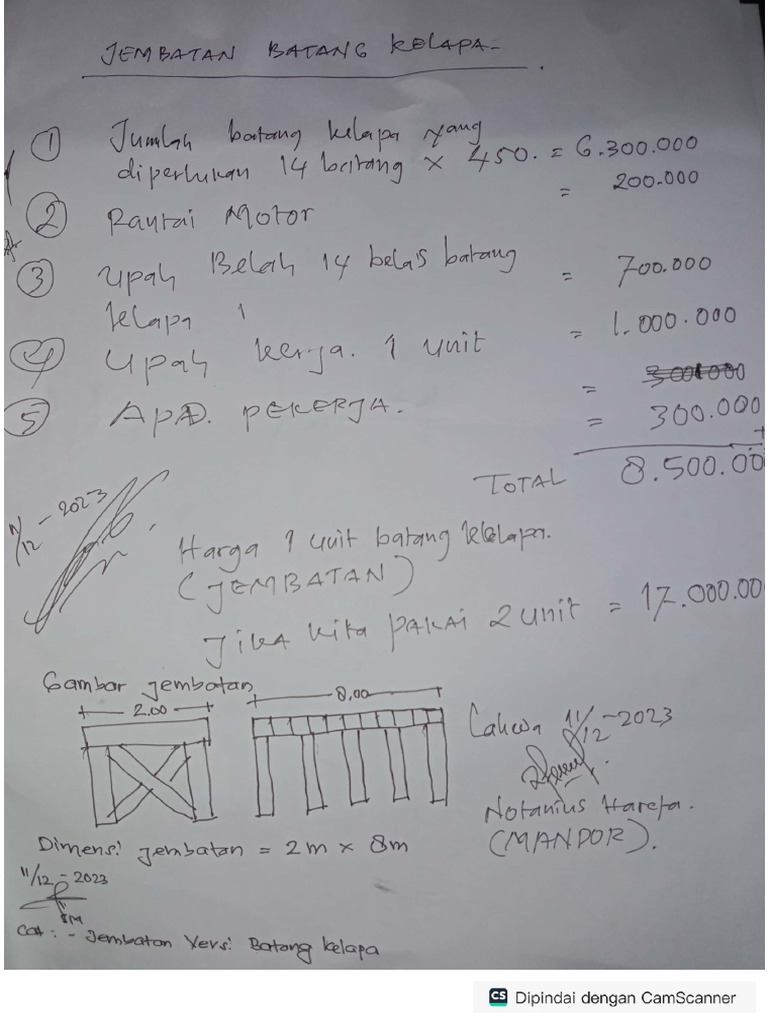 JEMBATAN BATANG KELAPA-
① Jumlah batang kelapa yang
diperlukan 14 batang × 450. = 6.300.000
② Rantai Motor = 200.000
③ Upah Belah 14 belas batang = 700.000
kelapa
④ Upah kerja. 1 unit = 1.000.000
=
⑤ APD. PEKERJA. = 300.000 +
TOTAL 8.500.00
11/12-2023
Harga 1 unit batang kelapa.
(JEMBATAN)
Jika kita PAKAI 2 unit = 17.000.00
Gambar jembatan
2.00
8,00
Lahewa 11/12-2023
Notanius Harefa.
(MANDOR).
Dimensi jembatan = 2m × 8m
11/12-2023
SM
Cat: - Jembatan Versi Batang kelapa
CS Dipindai dengan CamScanner